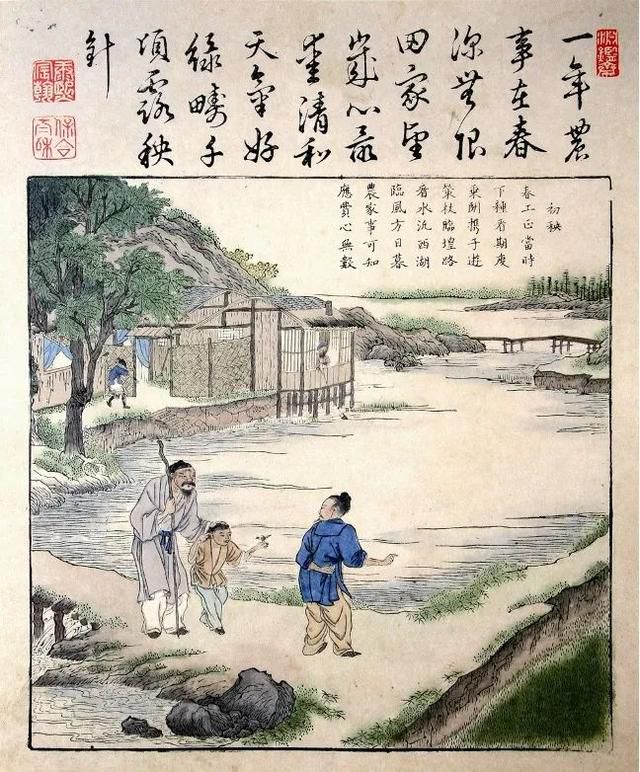 淵鑑齋
一年農
事在春
深無限
田家望
歲心最
愛清和
天氣好
綠疇千
頃露秧
針
康熙宸翰
保合太和
初秧
春工正當時
下種看期度
東携子遊
策杖臨路
看水西湖
臨風方日暮
農家事可知
應賞心無數